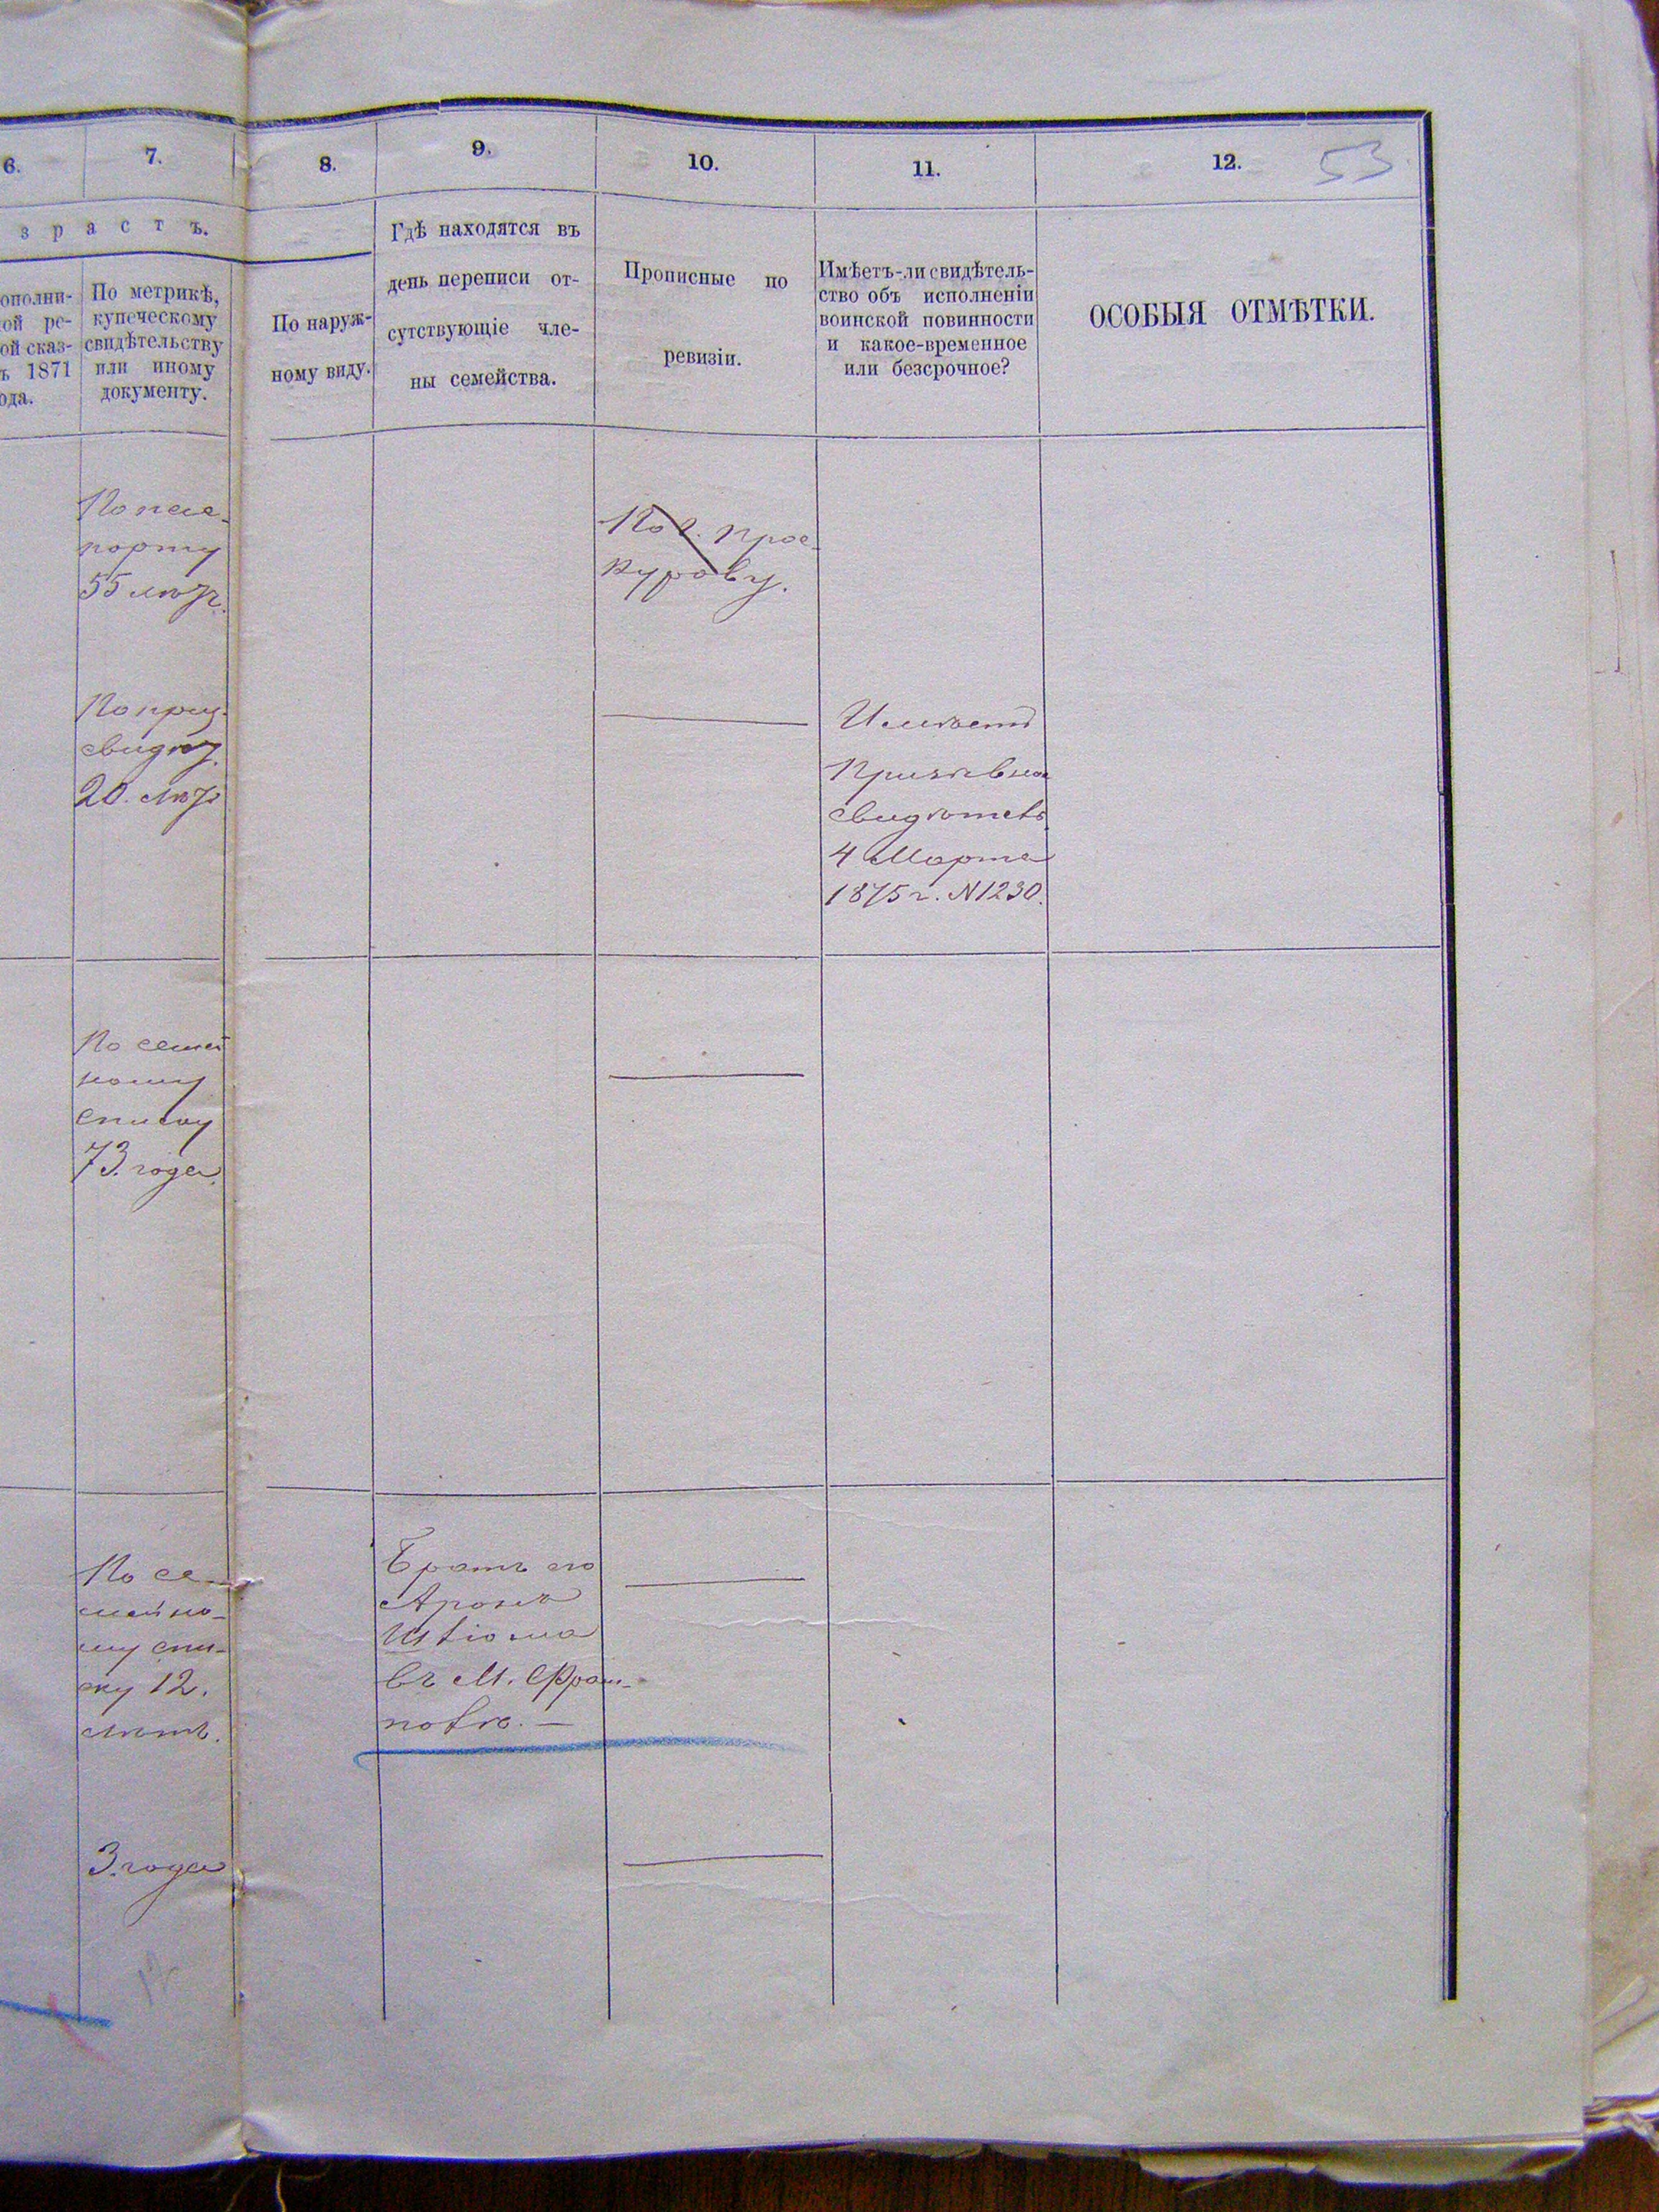 6.
7.
8.
9.
10.
11.
12.
53
зрастъ.
ополни-
ой ре-
ой сказ-
ъ 1871
ода.
По метрикѣ,
купеческому
свидѣтельству
или иному
документу.
По наруж-
ному виду.
Гдѣ находятся въ
день переписи от-
сутствующіе чле-
ны семейства.
Прописные по
ревизіи.
Имѣетъ-ли свидѣтель-
ство объ исполненіи
воинской повинности
и какое-временное
или безсрочное?
ОСОБЫЯ ОТМѢТКИ.
По пас-
порту
55 лѣтъ.
По г. Прос-
курову.
По приз.
свидѣт.
20. лѣтъ
Имѣетъ
Призывное
свидѣтель
4 Марта
1875 г. N1230.
По семей
ному
списку
73. года.
По се-
мейно-
му спи-
ску 12.
лѣтъ.
Братъ его
Аронъ
Шліома
въ М. Фрам-
полѣ. —
3. года
12